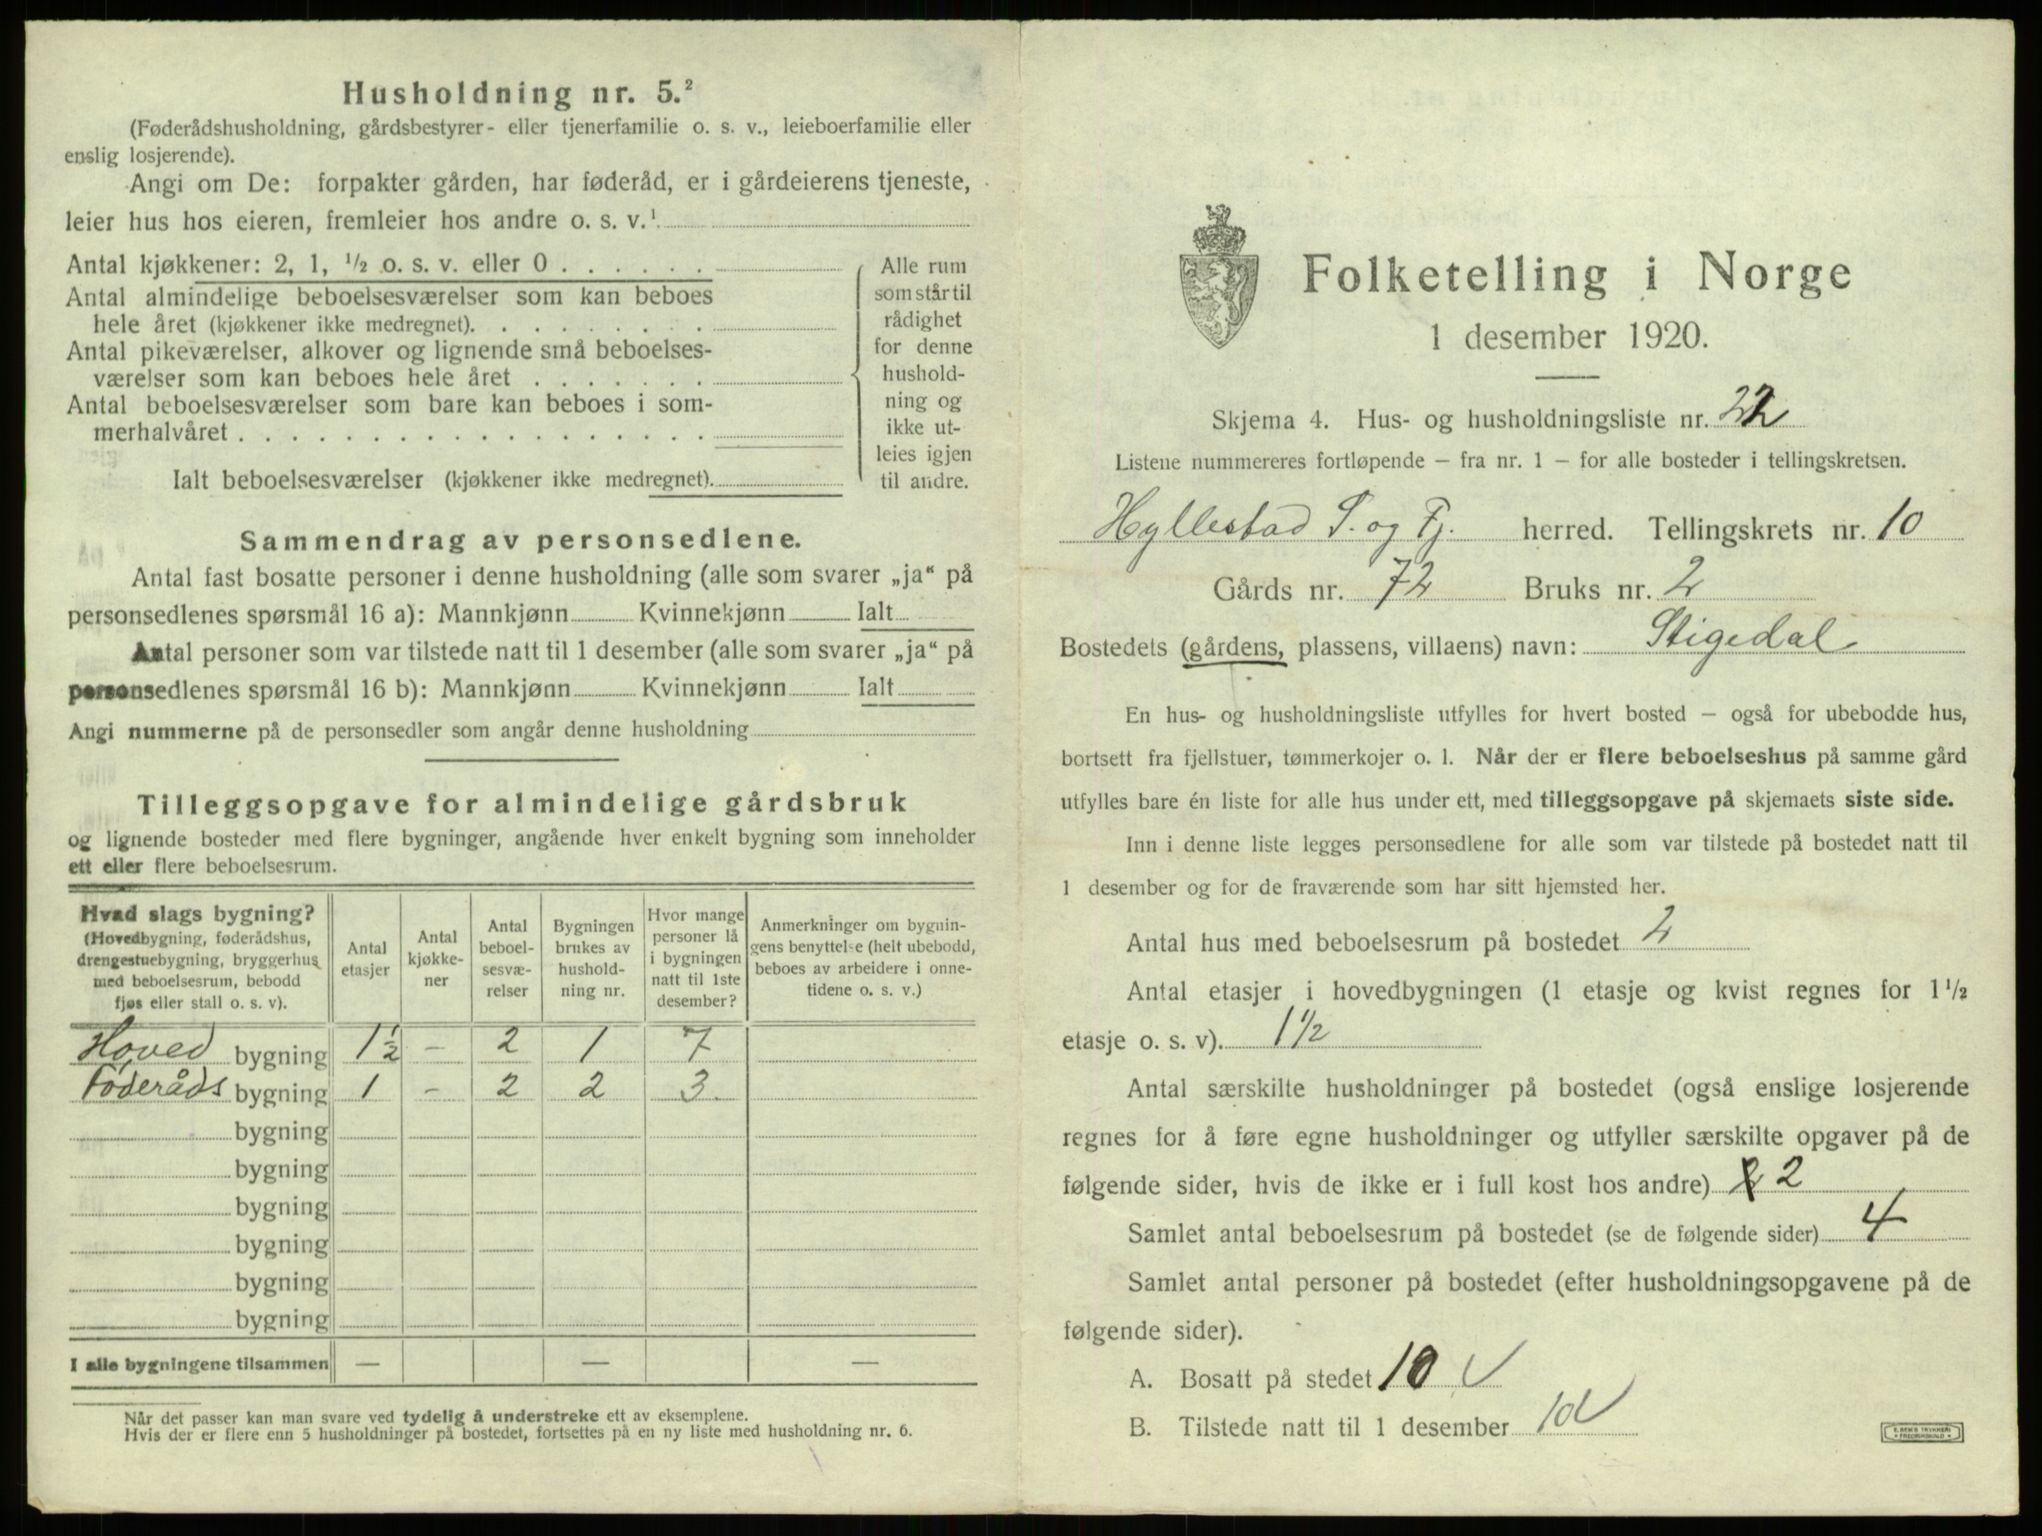 Husholdning nr. 5.²
(Føderådshusholdning, gårdsbestyrer- eller tjenerfamilie o. s. v., leieboerfamilie eller
enslig losjerende).
Angi om De: forpakter gården, har føderåd, er i gårdeierens tjeneste,
leier hus hos eieren, fremleier hos andre o. s. v.¹
Antal kjøkkener: 2, 1, ½ o. s. v. eller 0 . . . . . .
Antal almindelige beboelsesværelser som kan beboes
hele året (kjøkkener ikke medregnet). . . . . . . . .
Antal pikeværelser, alkover og lignende små beboelses-
værelser som kan beboes hele året . . . . . . .
Antal beboelsesværelser som bare kan beboes i som-
merhalvåret . . . . . . . . . . . . . . . . . .
Ialt beboelsesværelser (kjøkkener ikke medregnet).
Alle rum
som står til
rådighet
for denne
hushold-
ning og
ikke ut-
leies igjen
til andre.
Sammendrag av personsedlene.
Antal fast bosatte personer i denne husholdning (alle som svarer „ja“ på
personsedlenes spørsmål 16 a): Mannkjønn Kvinnekjønn Ialt
Antal personer som var tilstede natt til 1 desember (alle som svarer „ja“ på
personsedlenes spørsmål 16 b): Mannkjønn Kvinnekjønn Ialt
Angi nummerne på de personsedler som angår denne husholdning
Tilleggsopgave for almindelige gårdsbruk
og lignende bosteder med flere bygninger, angående hver enkelt bygning som inneholder
ett eller flere beboelsesrum.
Hvad slags bygning?
(Hovedbygning, føderådshus,
drengestuebygning, bryggerhus
med beboelsesrum, bebodd
fjøs eller stall o. s. v).
Antal
etasjer
Antal
kjøkke-
ner
Antal
beboel-
sesvæ-
relser
Bygningen
brukes av
hushold-
ning nr.
Hvor mange
personer lå
i bygningen
natt til 1ste
desember?
Anmerkninger om bygnin-
gens benyttelse (helt ubebodd,
beboes av arbeidere i onne-
tidene o. s. v.)
Hoved bygning 1½ - 2 1 7
Føderåds bygning 1 - 2 2 3
bygning
bygning
bygning
bygning
bygning
bygning
I alle bygningene tilsammen — — —
Når det passer kan man svare ved tydelig å understreke ett av eksemplene.
Hvis der er flere enn 5 husholdninger på bostedet, fortsettes på en ny liste med husholdning nr. 6.
Folketelling i Norge
1 desember 1920.
Skjema 4. Hus- og husholdningsliste nr. 22
Listene nummereres fortløpende — fra nr. 1 — for alle bosteder i tellingskretsen.
Hyllestad S. og Fj. herred. Tellingskrets nr. 10
Gårds nr. 72 Bruks nr. 2
Bostedets (gårdens, plassens, villaens) navn: Stigedal
En hus- og husholdningsliste utfylles for hvert bosted — også for ubebodde hus,
bortsett fra fjellstuer, tømmerkojer o. l. Når der er flere beboelseshus på samme gård
utfylles bare én liste for alle hus under ett, med tilleggsopgave på skjemaets siste side.
Inn i denne liste legges personsedlene for alle som var tilstede på bostedet natt til
1 desember og for de fraværende som har sitt hjemsted her.
Antal hus med beboelsesrum på bostedet 2
Antal etasjer i hovedbygningen (1 etasje og kvist regnes for 1½
etasje o. s. v). 1½
Antal særskilte husholdninger på bostedet (også enslige losjerende
regnes for å føre egne husholdninger og utfyller særskilte opgaver på de
følgende sider, hvis de ikke er i full kost hos andre) 2
Samlet antal beboelsesrum på bostedet (se de følgende sider) 4
Samlet antal personer på bostedet (efter husholdningsopgavene på de
følgende sider).
A. Bosatt på stedet 10 √
B. Tilstede natt til 1 desember 10 √